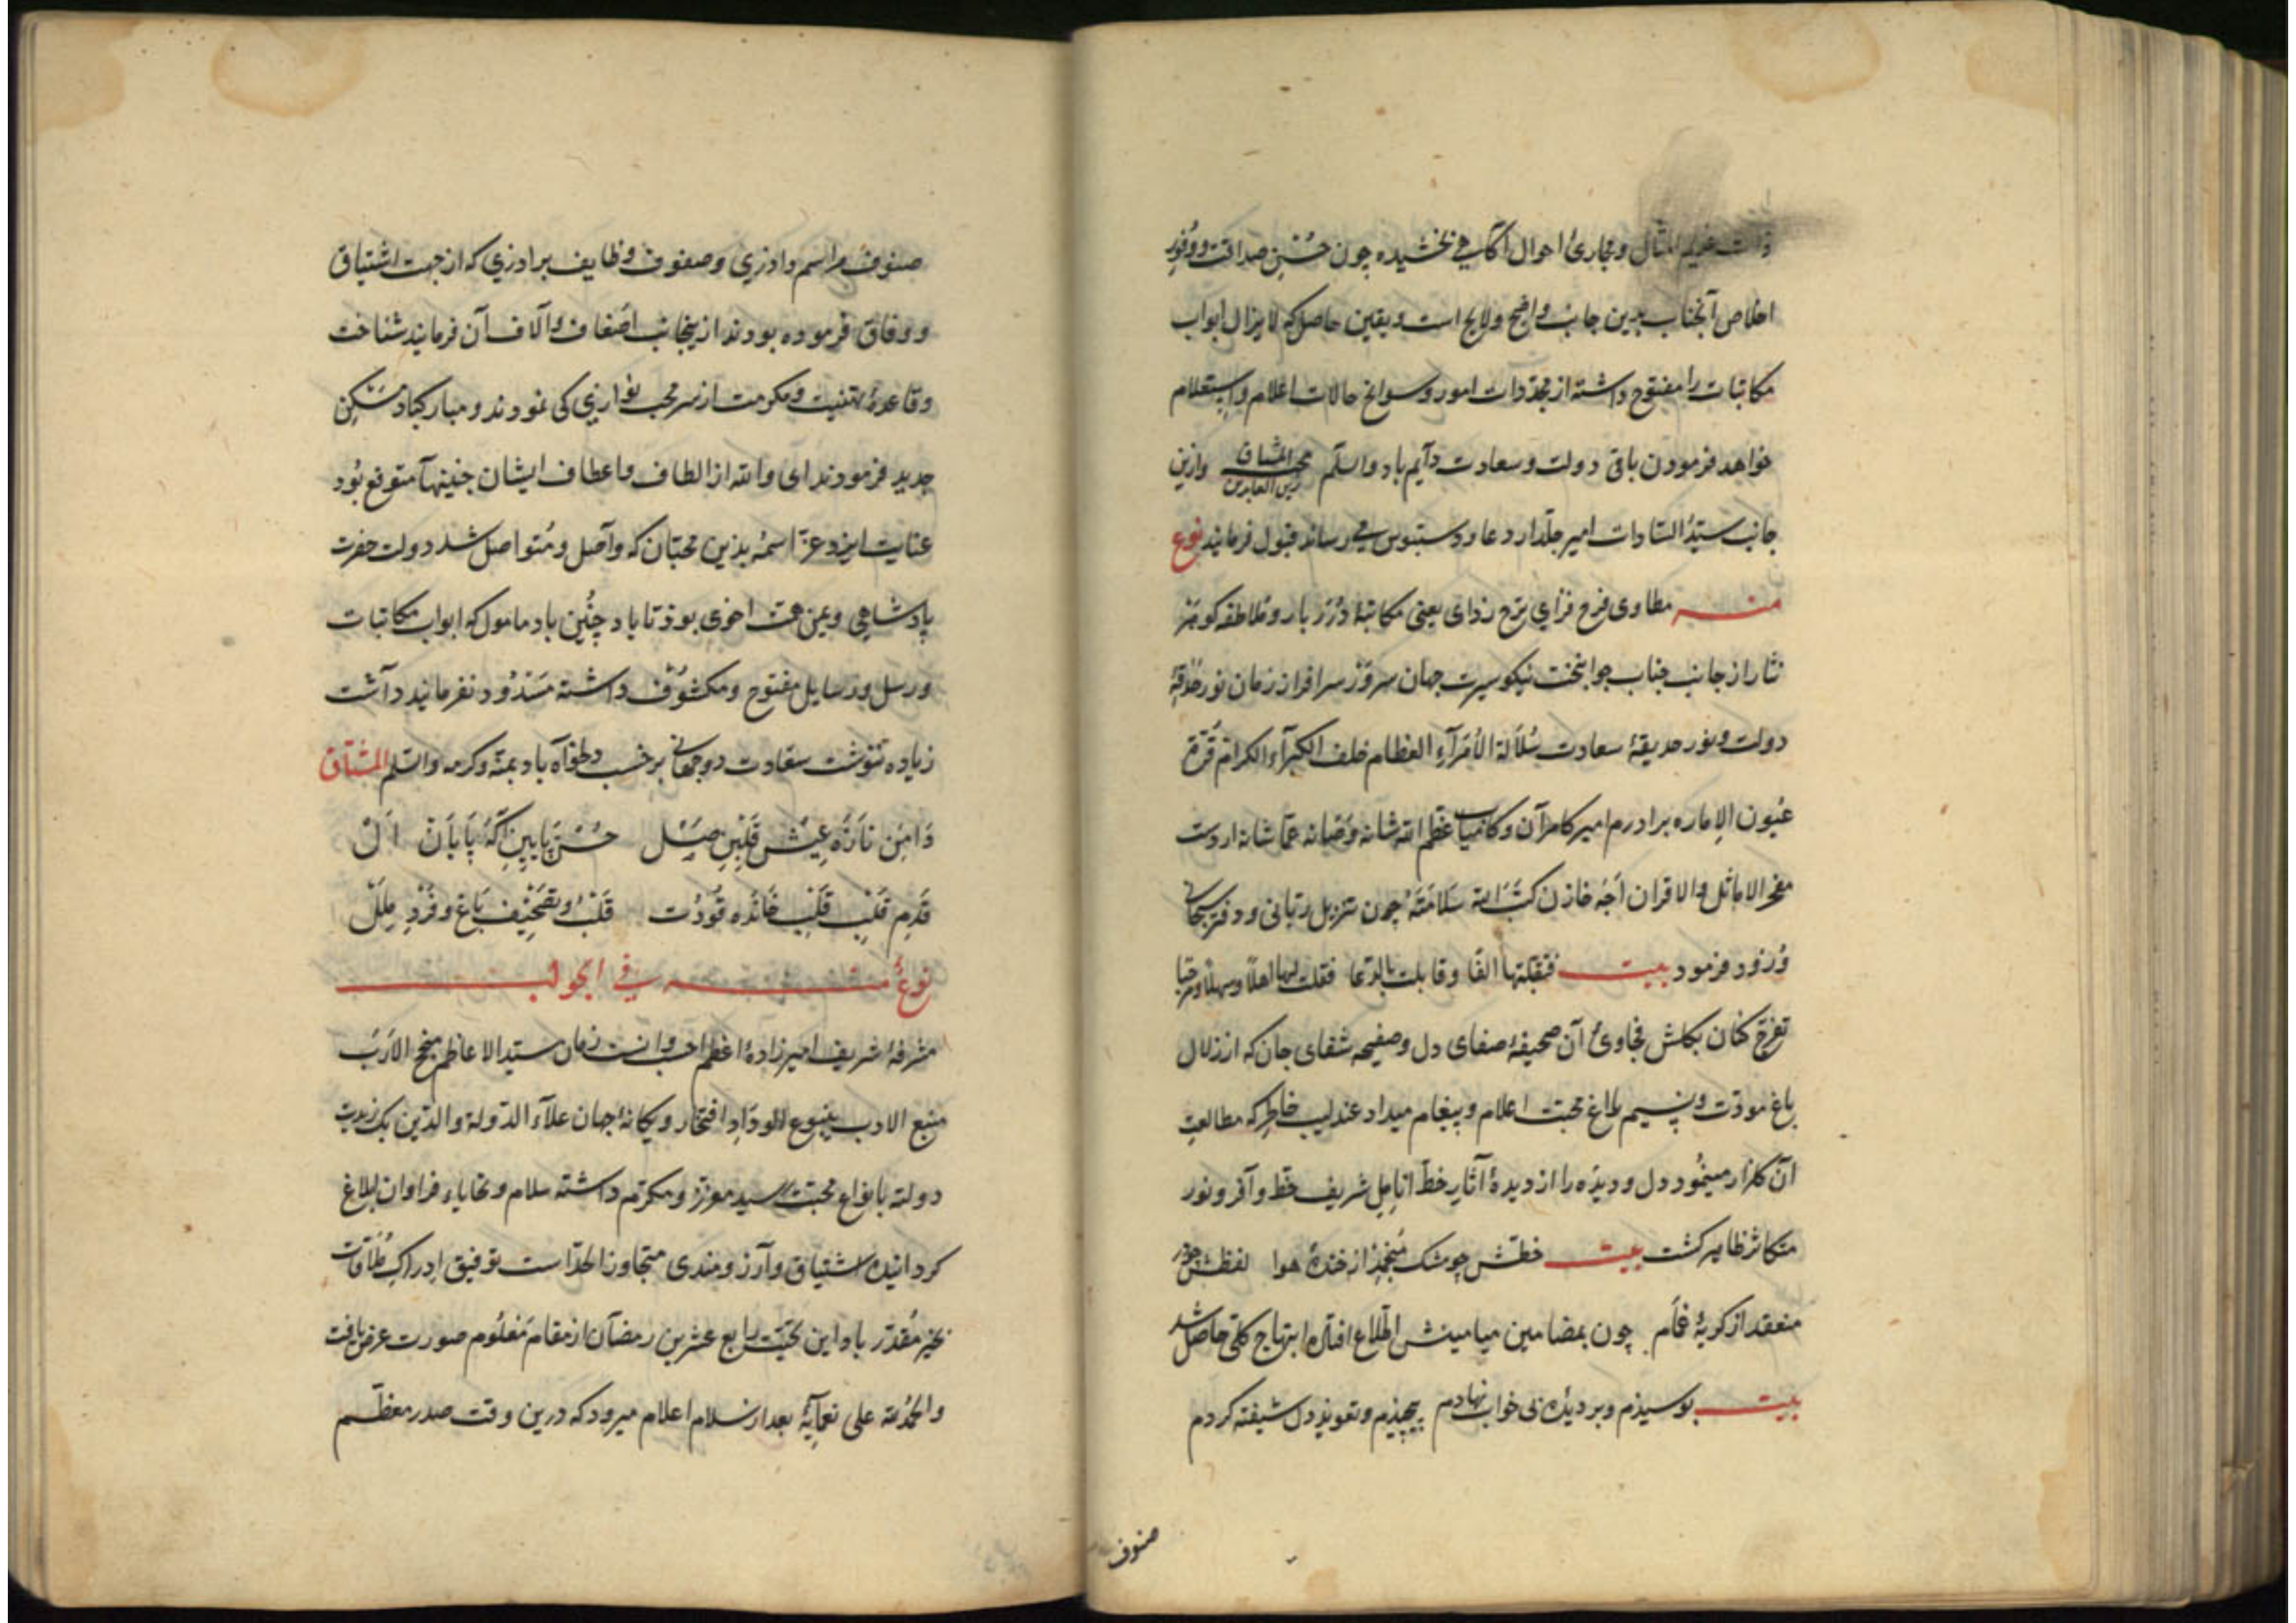 ذات عدیم المثال و مجاری احوال آگاهی بخشیده چون حُسنِ صداقت و وُفُورِ
اخلاص آنجناب بدین جانب واضح و لایح است و یقین حاصل که لا یزال ابواب
مکاتبات را مفتوح داشته از مجدّدات امور و سوانح حالات اعلام و استعلام
خواهد فرمودن باقی دولت و سعادت دآیم باد والسلم محب المشتاق زین العابدین وازین
جانب سیّد السّادات امیر جلّدار دعا و دستبوس می رساند قبول فرمایند نوع
منه مطاوی فرح فزای ترح زدای یعنی مکاتبهٔ دُرَر بار و ملاطفه کوهر
نثار از جانب جناب جوانبخت نیکو سیرت جهان سروَر سرافراز زمان نور حدقهٔ
دولت و نور حدیقهٔ سعادت سُلالة الأمرآءِ العظام خلف الکبرآء الکرام قُرّة
عُیون الإماره برادرم امیر کامرآن و کامیاب عظم الله شانه وَصَانه عمّا شانه از دست
مفخر الاماثل والاقران خازن کتَبَ الله سَلامَتَهُ چون تنزیل ربّانی و دفتر سبحانی
وُرود فرمود بیت فقبلتها الفًا وقابلت بالدعا فقلت لها اهلًا وسهلًا ومرحبا
تفرّج کنان بکلشن فحاوئ آن صحیفهٔ صفای دل و صفیحه شفای جان که از زلال
باغ مودّت و نسیم بلاغ محبت اعلام و پیغام میداد عندلیب خاطر که مطالعتِ
آن کلزار مینمُود دل و دیدَه را از دیدهٔ آثارِ خطّ انامِل شریف حظّ وآفر و نور
متکاثر ظاهر کشت بیت خطّش چو مشک مُنجمِد از خندهٔ هوا لفظش چو در
منعقد از کریهٔ غمام چون بمضامین میامینش اطّلاع افتاد ابتهاج کلّی حاصل شد
بیت بوسیذم و بر دیدهٔ بی خواب نهادم پیچیذم و تعویذ دل شیفته کردم
صنوف
صنوف مراسم و صفوف وظایف برادری که از جهت اشتیاق
و وفاق فرموده بودند از ینجانب اضعاف و آلاف آن فرمایند شناخت
و قاعدهٔ تهنیت و مکرمت از سر محب نوازی کی نمودند و مبارکباد مَسْکن
جدید فرمودند ای والله از الطاف و اعطاف ایشان جنینها متوقع بُود
عنایت ایزد عزّ اسمهُ بدین محبّان که وآصل و مُتواصل شد دولت حضرت
پادشاهی و یمن همت اخوی بوذ تا باد چُنین باد مامول که ابواب مکاتبات
و رسل و رسایل مفتوح و مکشُوف داشته مَسْدُود نفرمایند دآشت
زیاده ننوشت سعَادت دوجهانی برحسب دلخواه باد بمنّه و کرمه والسلم المشتاق
دَامَن تازَه عیش قَلْبِ
قَدَم قَلْبِ قَلْب خَانَه قَلْبُ و تصْحِیف بَاغ و فَرْدِ
نوعٌ منه فی الجواب
مشرفهٔ شریف امیر زادهٔ اعظم زمان سیّد الاعاظم منجح الارب
منبع الادب ینبوع الوداد افتخار و یکانهٔ جهان علآء الدّولة والدّین بک زیدت
دولته بانواع محبت رسید معزز و مکرّم داشته سلام و تحایاء فراوان ابلاغ
کردانید اشتیاق و آرزومندی متجاوز الحدّ است توفیق ادراکِ مُلاقات
بخیر مُقدّر باد این تحیّت رابع عشرین رمضآن از مقام مَعْلُوم صورت عرض یافت
والحمدُ لله علی نعمآیِهٔ بعد از سلام اعلام میرود که درین وقت صدر معظّم